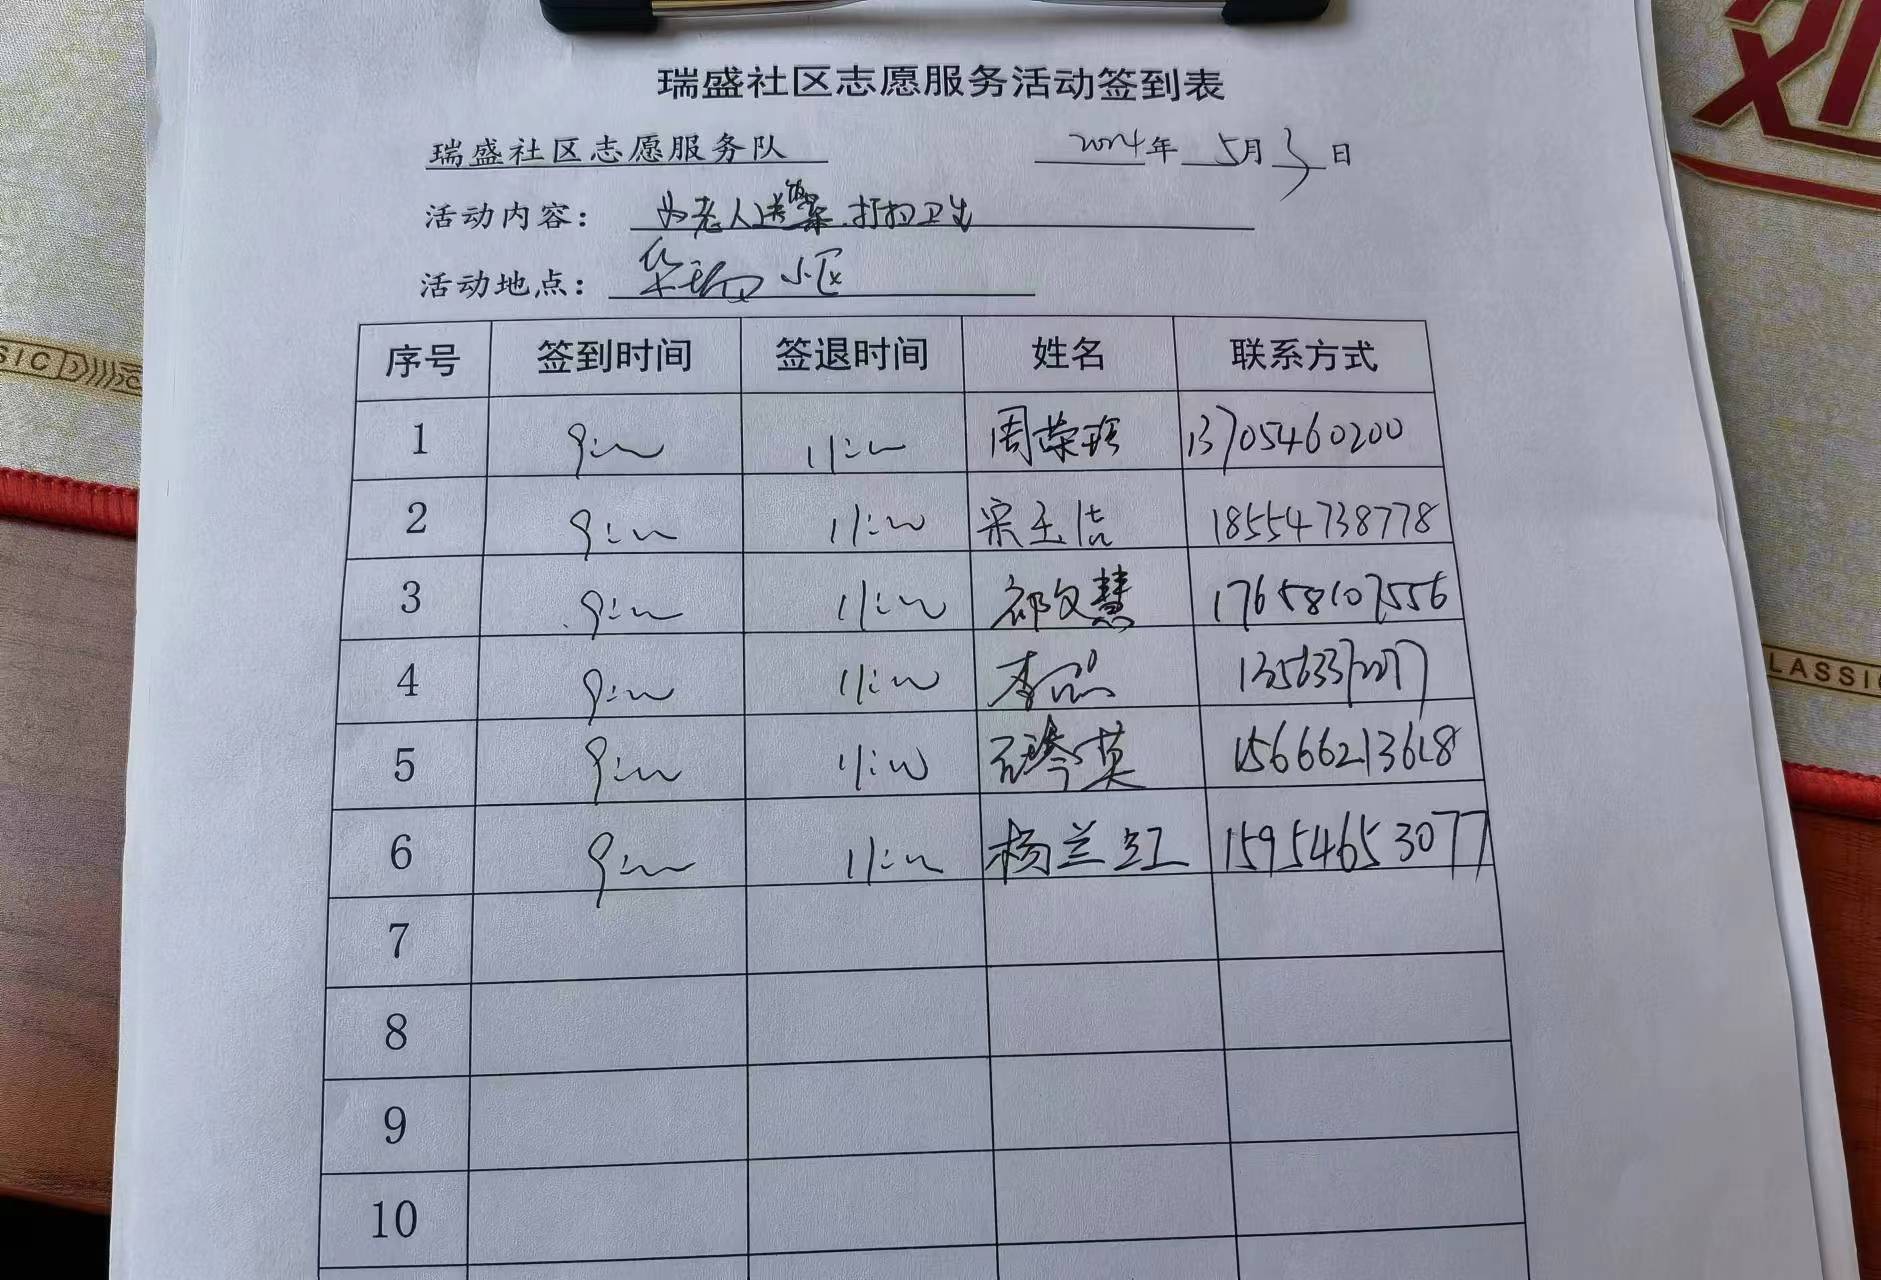 瑞盛社区志愿服务活动签到表
瑞盛社区志愿服务队 2024年 5月3日
活动内容： 为老人送 打扫卫生
活动地点： 华瑞 小区
序号 签到时间 签退时间 姓名 联系方式
1 9:00 11:00 周荣 13705460200
2 9:00 11:00 宋玉洁 18554738778
3 9:00 11:00 祁文慧 17658107556
4 9:00 11:00 李
5 9:00 11:00 石琴英 15666213618
6 9:00 11:00 杨兰红 15954653077
7
8
9
10
SIC
CLASSIC